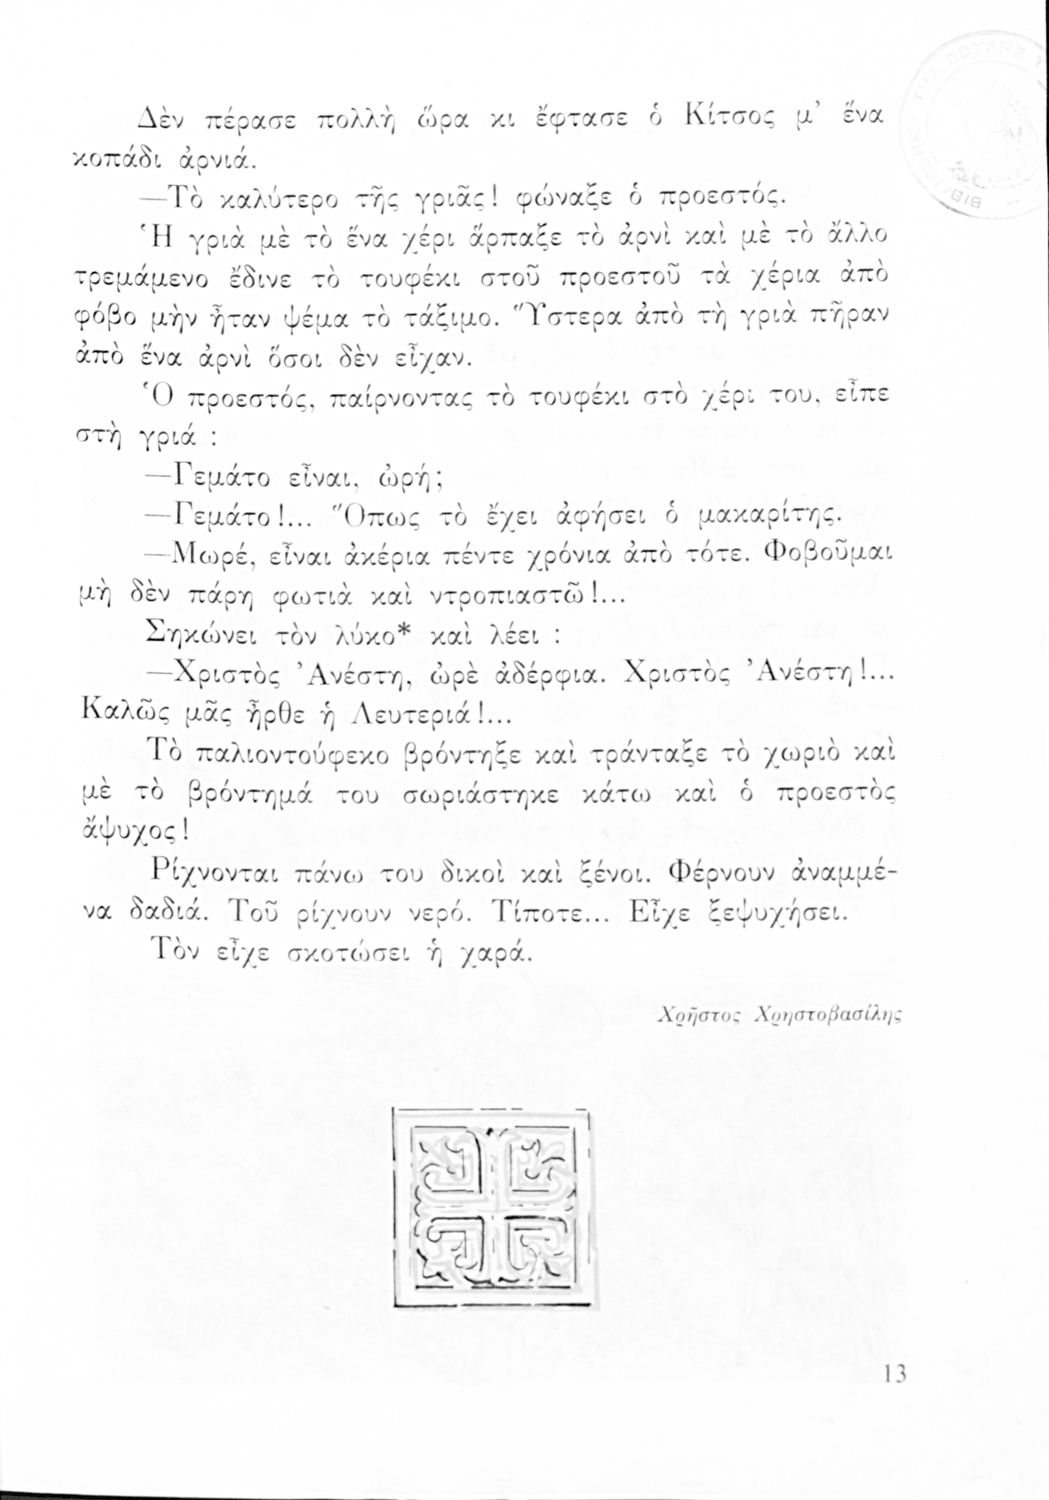 Δὲν πέρασε πολλὴ ὥρα κι ἔφτασε ὁ Κίτσος μ’ ἕνα
κοπάδι ἀρνιά.
—Τὸ καλύτερο τῆς γριᾶς! φώναξε ὁ προεστός.
Ἡ γριὰ μὲ τὸ ἕνα χέρι ἅρπαξε τὸ ἀρνὶ καὶ μὲ τὸ ἄλλο
τρεμάμενο ἔδινε τὸ τουφέκι στοῦ προεστοῦ τὰ χέρια ἀπὸ
φόβο μὴν ἦταν ψέμα τὸ τάξιμο. Ὕστερα ἀπὸ τὴ γριὰ πῆραν
ἀπὸ ἕνα ἀρνὶ ὅσοι δὲν εἶχαν.
Ὁ προεστός, παίρνοντας τὸ τουφέκι στὸ χέρι του, εἶπε
στὴ γριά :
—Γεμάτο εἶναι, ὠρή;
—Γεμάτο!... Ὅπως τὸ ἔχει ἀφήσει ὁ μακαρίτης.
—Μωρέ, εἶναι ἀκέρια πέντε χρόνια ἀπὸ τότε. Φοβοῦμαι
μὴ δὲν πάρη φωτιὰ καὶ ντροπιαστῶ!...
Σηκώνει τὸν λύκο* καὶ λέει :
—Χριστὸς Ἀνέστη, ὠρὲ ἀδέρφια. Χριστὸς Ἀνέστη!...
Καλῶς μᾶς ἦρθε ἡ Λευτεριά!...
Τὸ παλιοντούφεκο βρόντηξε καὶ τράνταξε τὸ χωριὸ καὶ
μὲ τὸ βρόντημά του σωριάστηκε κάτω καὶ ὁ προεστὸς
ἄψυχος!
Ρίχνονται πάνω του δικοὶ καὶ ξένοι. Φέρνουν ἀναμμέ-
να δαδιά. Τοῦ ρίχνουν νερό. Τίποτε... Εἶχε ξεψυχήσει.
Τὸν εἶχε σκοτώσει ἡ χαρά.
Χρῆστος Χρηστοβασίλης
13